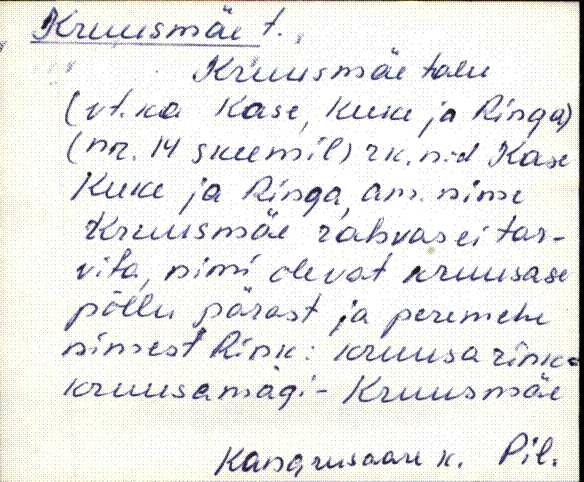 Kruusmäe t.
Kruusmäe talu
(vt. ka Kase, Kuke ja Ringa)
(nr. 14 skeemil) rk. n-d Kase
Kuke ja Ringa, am. nime
Kruusmäe rahvas ei tar-
vita, nimi olevat kruusase
põllu pärast ja peremehe
nimest Rink: kruusarink=
kruusamägi - Kruusmäe
Kangrusaare k. Pil.